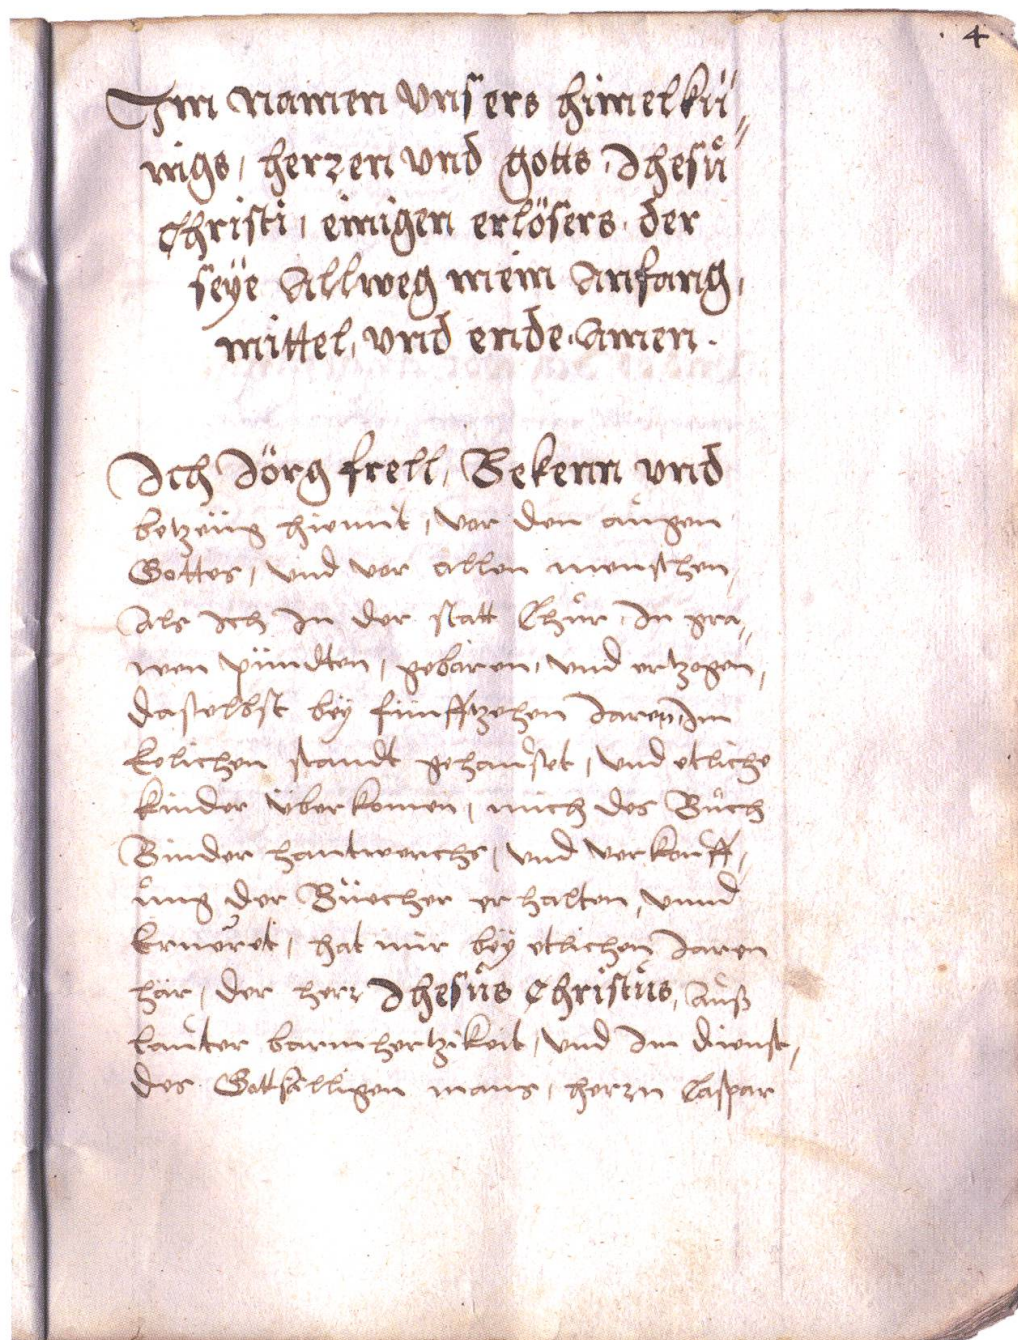 4
Im namen unsers himelkü„
nigs, herren und gotts Jhesů
Christi, einigen erlösers. der
seÿe Allweg mein Anfang,
mittel, und ende. Amen.
Ich Jörg frell, Bekenn und
betzeüg hiemit, vor den aůgen
Gottes, und vor allen menschen,
Als Ich In der statt Chůr, In gra„
wen pündten, geboren, und ertzogen,
daselbst beÿ fünfftzehen Jaren, Im
Eelichen standt gehaůset, und etliche
kinder überkomen, mich des Bůch
Binder hantwerchs, und verkoůff„
ůng der Büecher erhalten, unnd
Erneret, hat mir beÿ etlichen Jaren
här, der herr Jhesůs Christůs, Aůß
laůter barmhertzikeit, und Im dienst,
des Gottsälligen mans, herren Caspar